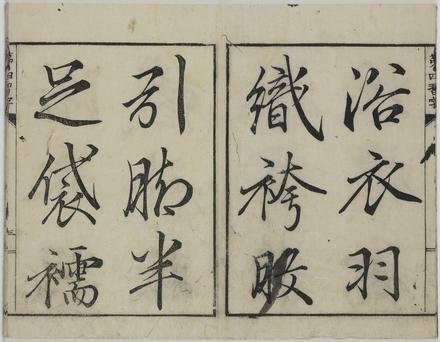 浴衣羽
織袴股
引脚半
足袋襦